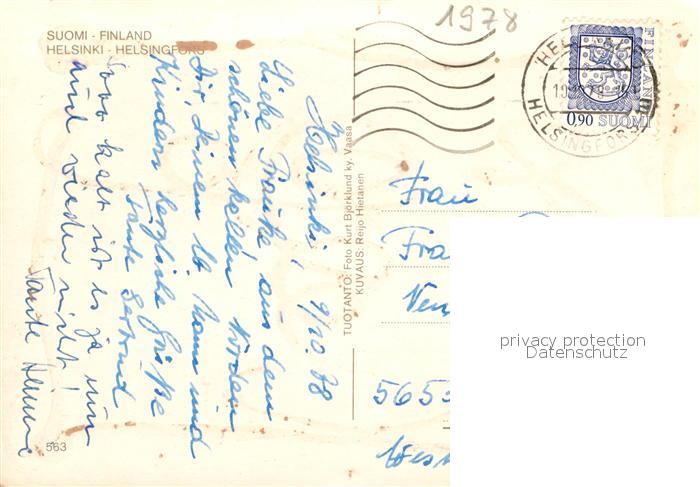 1978
SUOMI - FINLAND
HELSINKI - HELSINGFORS
Helsinki, 9/10.78
Liebe Frauke, aus dem
schönen hellen Norden
Dir, Deinem lb. Mann und
Kindern herzliche Grüße
Tante Gertrud
Sooo kalt ist es ja nun
und wieder nicht!
Tante
563
TUOTANTO: Foto Kurt Björklund ky. Vaasa
KUVAUS: Reijo Hietanen
FINLAND
0,90 SUOMI
HELSINKI
HELSINGFORS
Frau
Fra
Ven
565
West
privacy protection
Datenschutz